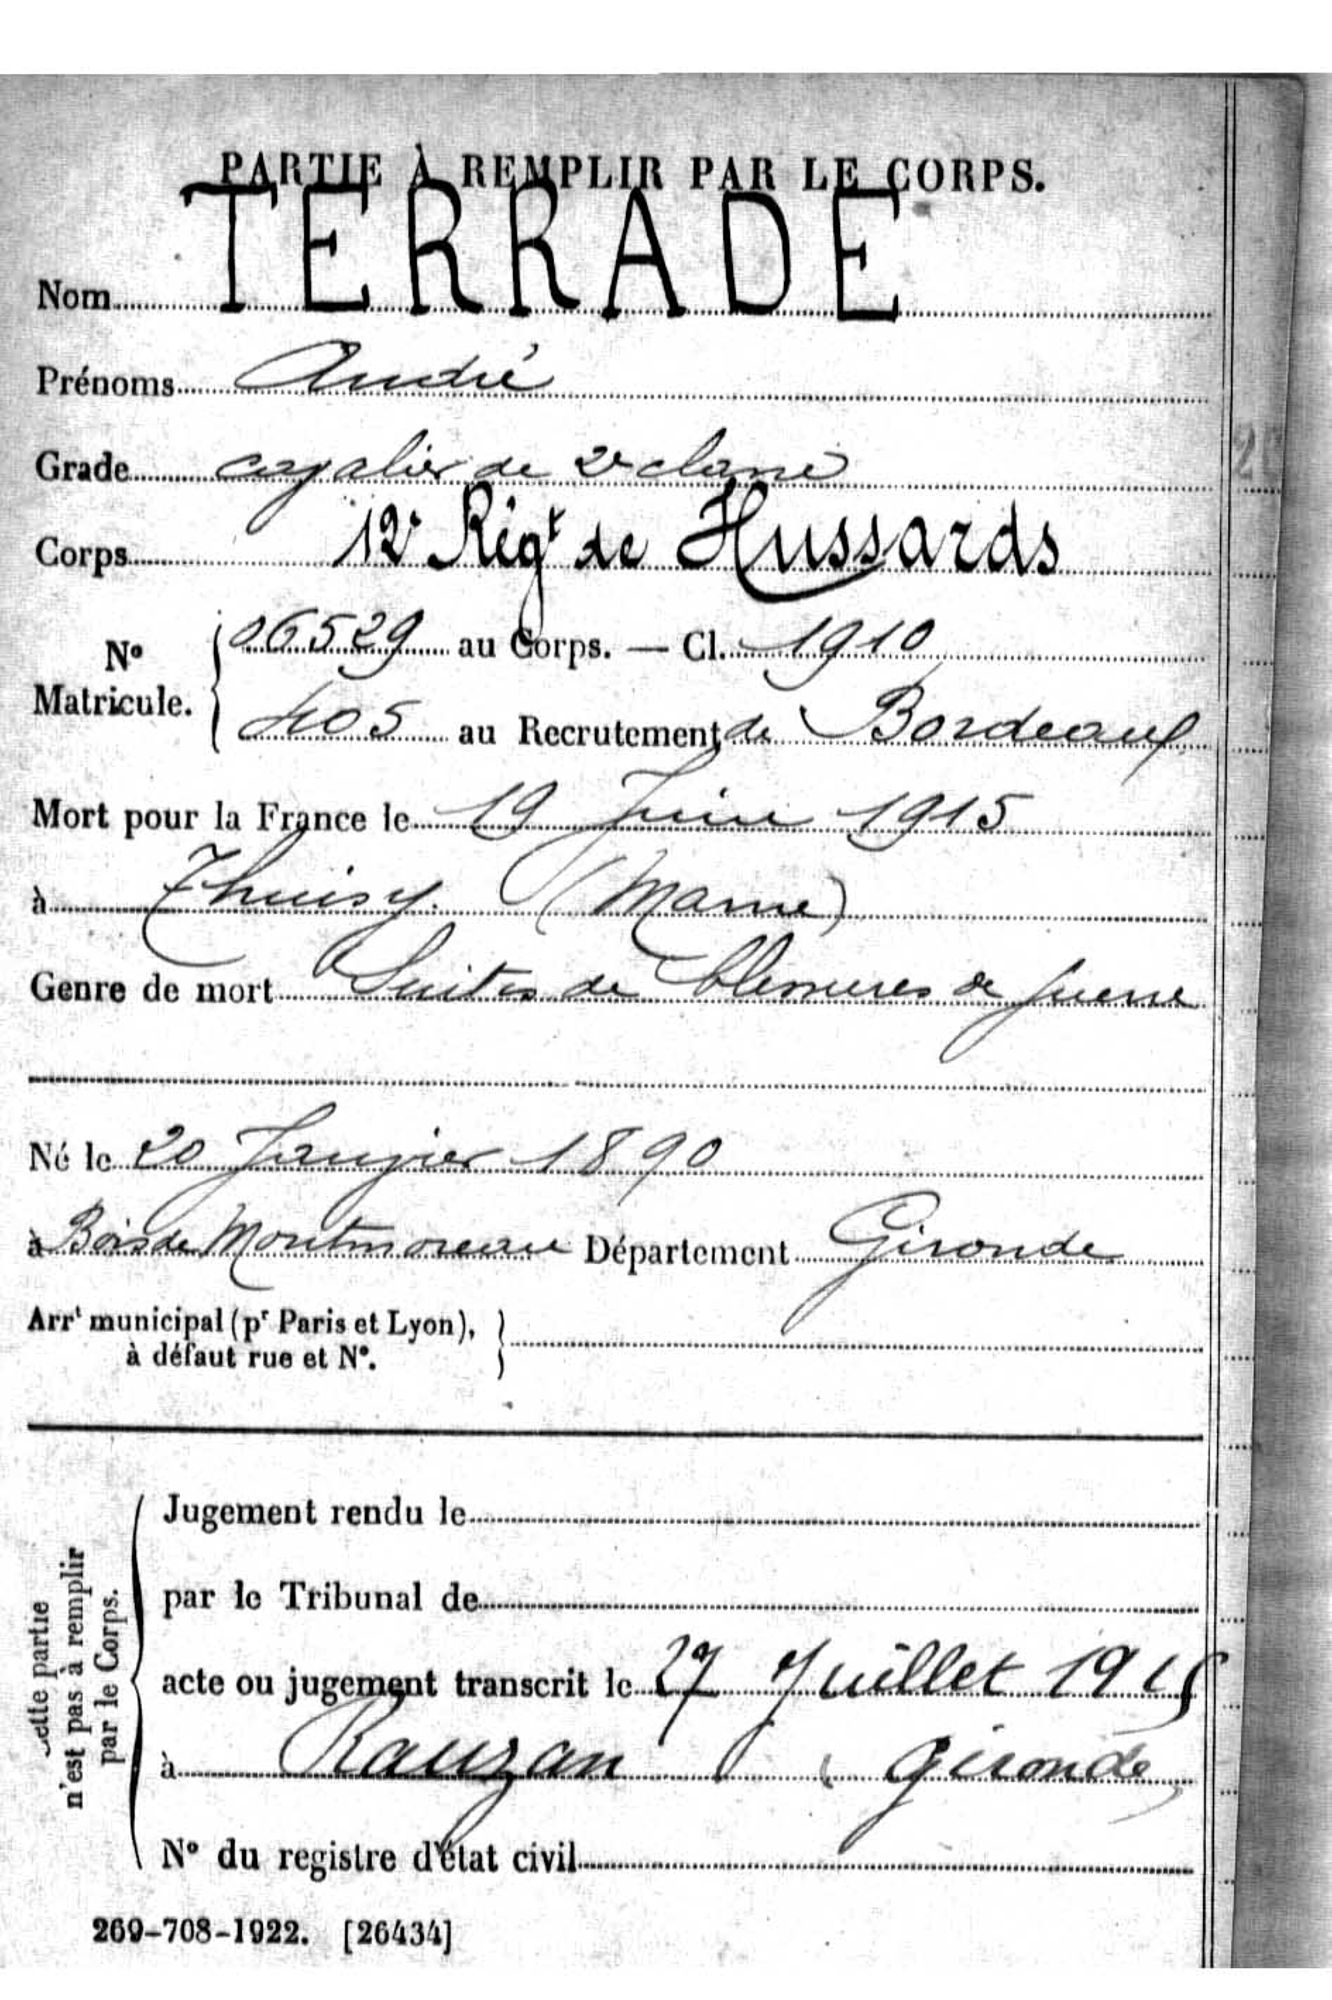 PARTIE À REMPLIR PAR LE CORPS.
Nom TERRADE
Prénoms André
Grade cavalier de 2e classe
Corps 12e Régt de Hussards
No Matricule. { 06529 au Corps. — Cl. 1910
405 au Recrutement de Bordeaux
Mort pour la France le 19 Juin 1915
à Thuisy (Marne)
Genre de mort Suites de blessures de guerre
Né le 20 Janvier 1890
à Bois de Montmoreau Département Gironde
Arrt municipal (pr Paris et Lyon), }
à défaut rue et No.
Cette partie
n'est pas à remplir
par le Corps.
Jugement rendu le
par le Tribunal de
acte ou jugement transcrit le 27 Juillet 1915
à Rauzan (Gironde)
No du registre d'état civil
269-708-1922. [26434]